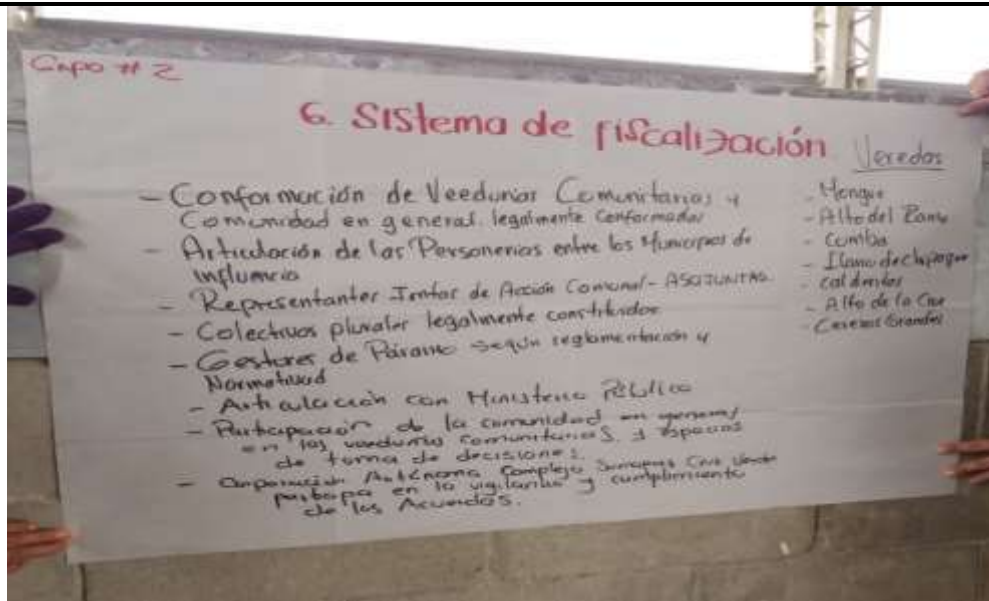 Grupo # 2
6. Sistema de fiscalización
- Conformación de Veedurias Comunitarias y
Comunidad en general. legalmente conformadas
- Articulación de las Personerias entre los Municipios de
influencia
- Representantes Juntas de Acción Comunal - ASOJUNTAS.
- Colectivos plurales legalmente constituidos
- Gestores de Páramo según reglamentación y
Normatividad
- Articulación con Ministerio Público
- Participación de la comunidad en general
en las veedurias comunitarias y espacios
de toma de decisiones.
- Corporación Autónoma Complejo Cruz Verde
participa en la vigilancia y cumplimiento
de los Acuerdos.
Veredas
- Alto del Ramo
- Cumba
- Llano de chipaque
- caldentas
- Alto de la Cruz
- Caseros Grandes